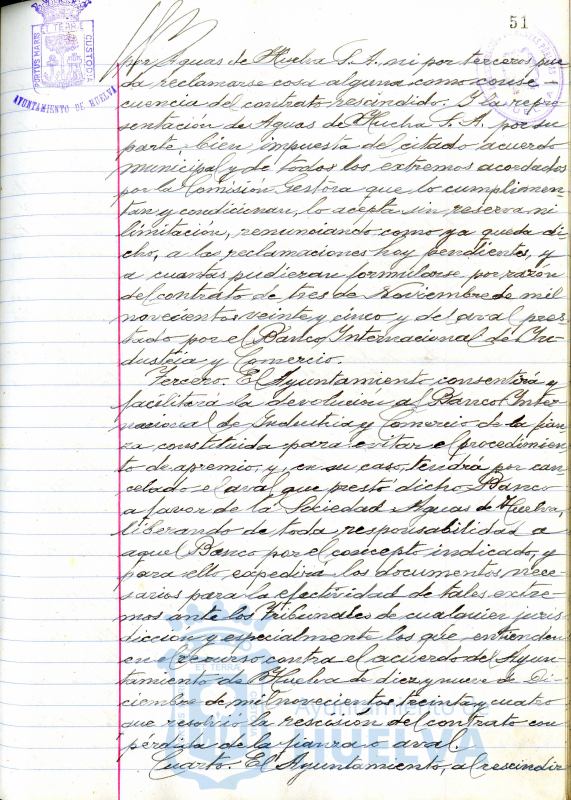 51
PORTUS MARIS ET TERRE CUSTODIA
AYUNTAMIENTO DE HUELVA
por Aguas de Huelva S.A. ni por terceros pue-
da reclamarse cosa alguna como conse-
cuencia del contrato rescindido. Y la repre-
sentación de Aguas de Huelva S.A. por su
parte, bien impuesta del citado acuerdo
municipal y de todos los extremos acordados
por la Comisión Gestora que lo cumplimen-
tan y condicionan, lo acepta sin reserva ni
limitación, renunciando como ya queda di-
cho, a las reclamaciones hoy pendientes, y
a cuantas pudieran formularse por razón
del contrato de tres de Noviembre de mil
novecientos veinte y cinco y del aval pres-
tado por el Banco Internacional de In-
dustria y Comercio.
Tercero. El Ayuntamiento consentirá y
facilitará la devolución al Banco Inter-
nacional de Industria y Comercio de la fian-
za constituida para evitar el procedimien-
to de apremio, y, en su caso, tendrá por can-
celado el aval que prestó dicho Banco
a favor de la Sociedad Aguas de Huelva,
liberando de toda responsabilidad a
aquel Banco por el concepto indicado, y
para ello, expedirá los documentos nece-
sarios para la efectividad de tales extre-
mos ante los Tribunales de cualquier juris-
dicción y especialmente los que entienden
en el recurso contra el acuerdo del Ayun-
tamiento de Huelva de diez y nueve de Di-
ciembre de mil novecientos treinta y cuatro
que resolvió la rescisión del contrato con
pérdida de la fianza o aval.
Cuarto. El Ayuntamiento, al rescindir
Ayuntamiento
HUELVA